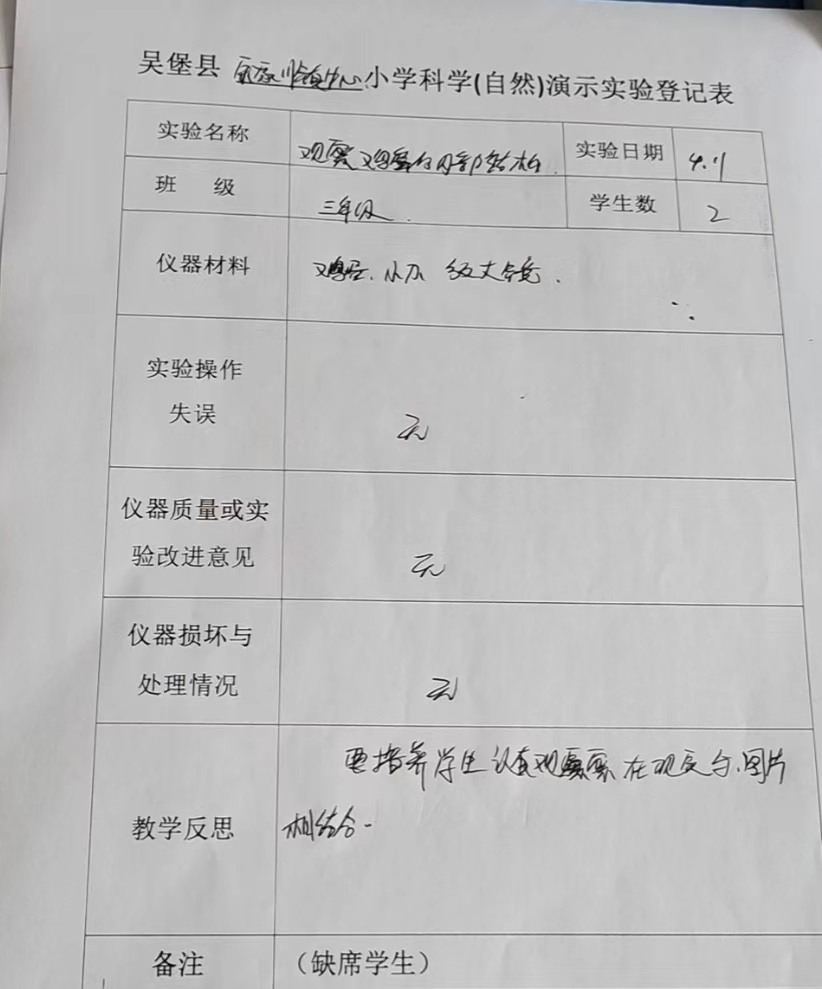 吴堡县 中心小学科学(自然)演示实验登记表
实验名称 观察鸡蛋的内部结构. 实验日期 4.11
班 级 三年级. 学生数 2
仪器材料 鸡蛋. 小刀 放大镜.
实验操作
失误
无
仪器质量或实
验改进意见
无
仪器损坏与
处理情况
无
要培养学生认真观察 在观 与 图片
教学反思 相结合-
备注 （缺席学生）